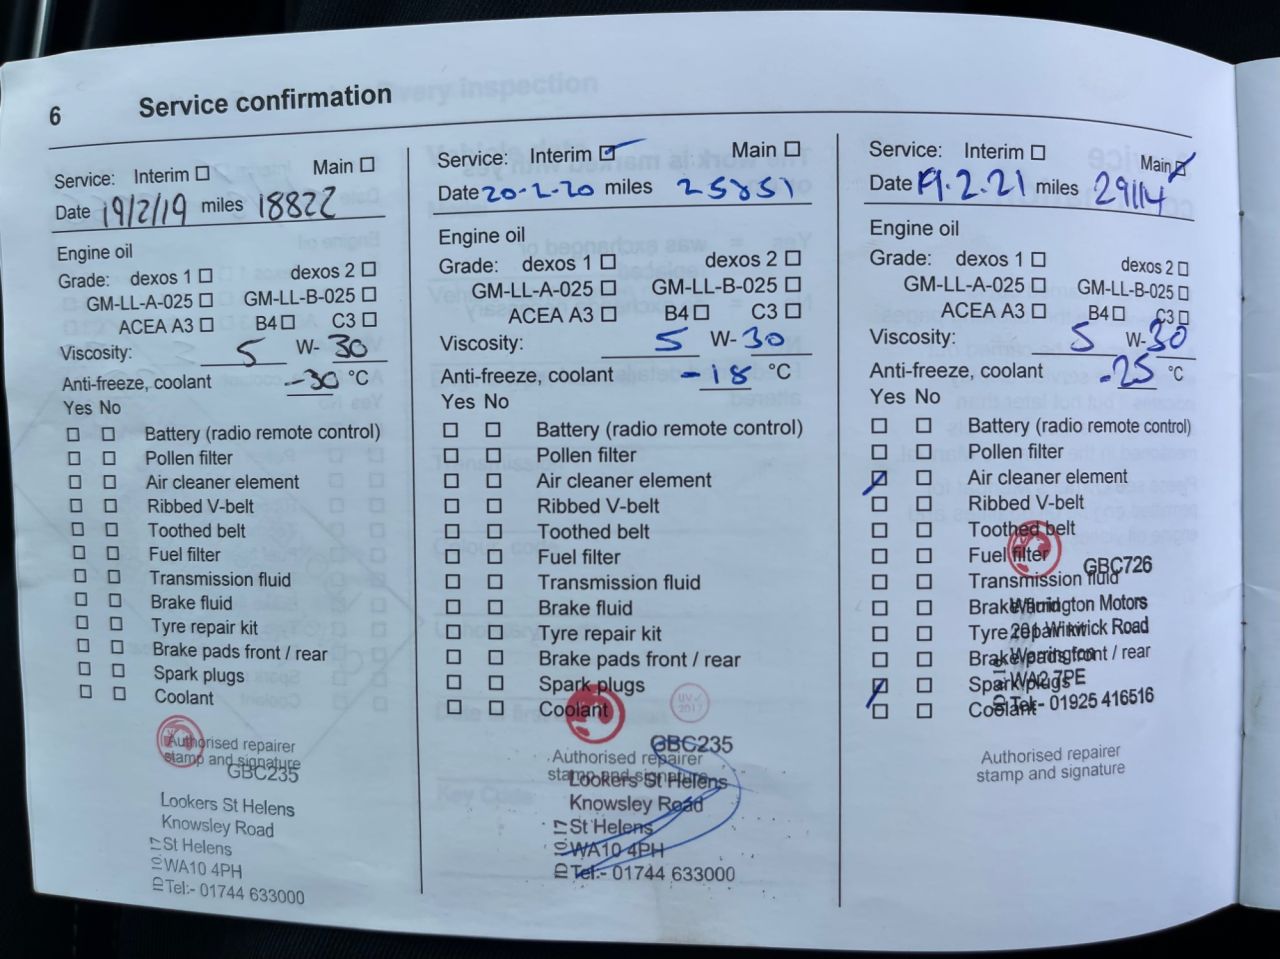 6 Service confirmation
Service: Interim Main
Date 19/2/19 miles 18822
Engine oil
Grade: dexos 1 dexos 2
GM-LL-A-025 GM-LL-B-025
ACEA A3 B4 C3
Viscosity: 5 W- 30
Anti-freeze, coolant -30 °C
Yes No
Battery (radio remote control)
Pollen filter
Air cleaner element
Ribbed V-belt
Toothed belt
Fuel filter
Transmission fluid
Brake fluid
Tyre repair kit
Brake pads front / rear
Spark plugs
Coolant
Authorised repairer
stamp and signature
GBC235
Lookers St Helens
Knowsley Road
St Helens
WA10 4PH
Tel:- 01744 633000
ID 10.17
Service: Interim Main
Date 20-2-20 miles 25851
Engine oil
Grade: dexos 1 dexos 2
GM-LL-A-025 GM-LL-B-025
ACEA A3 B4 C3
Viscosity: 5 W- 30
Anti-freeze, coolant -18 °C
Yes No
Battery (radio remote control)
Pollen filter
Air cleaner element
Ribbed V-belt
Toothed belt
Fuel filter
Transmission fluid
Brake fluid
Tyre repair kit
Brake pads front / rear
Spark plugs
Coolant
UV
2017
GBC235
Authorised repairer
stamp and signature
Lookers St Helens
Knowsley Road
St Helens
WA10 4PH
Tel:- 01744 633000
ID 10.17
Service: Interim Main
Date 19.2.21 miles 29114
Engine oil
Grade: dexos 1 dexos 2
GM-LL-A-025 GM-LL-B-025
ACEA A3 B4 C3
Viscosity: 5 W- 30
Anti-freeze, coolant -25 °C
Yes No
Battery (radio remote control)
Pollen filter
Air cleaner element
Ribbed V-belt
Toothed belt
Fuel filter
GBC726
Transmission fluid
Brake fluid
Warrington Motors
Tyre repair kit
201 Winwick Road
Brake pads front / rear
Warrington
WA2 7PE
Spark plugs
Tel:- 01925 416516
Coolant
Authorised repairer
stamp and signature